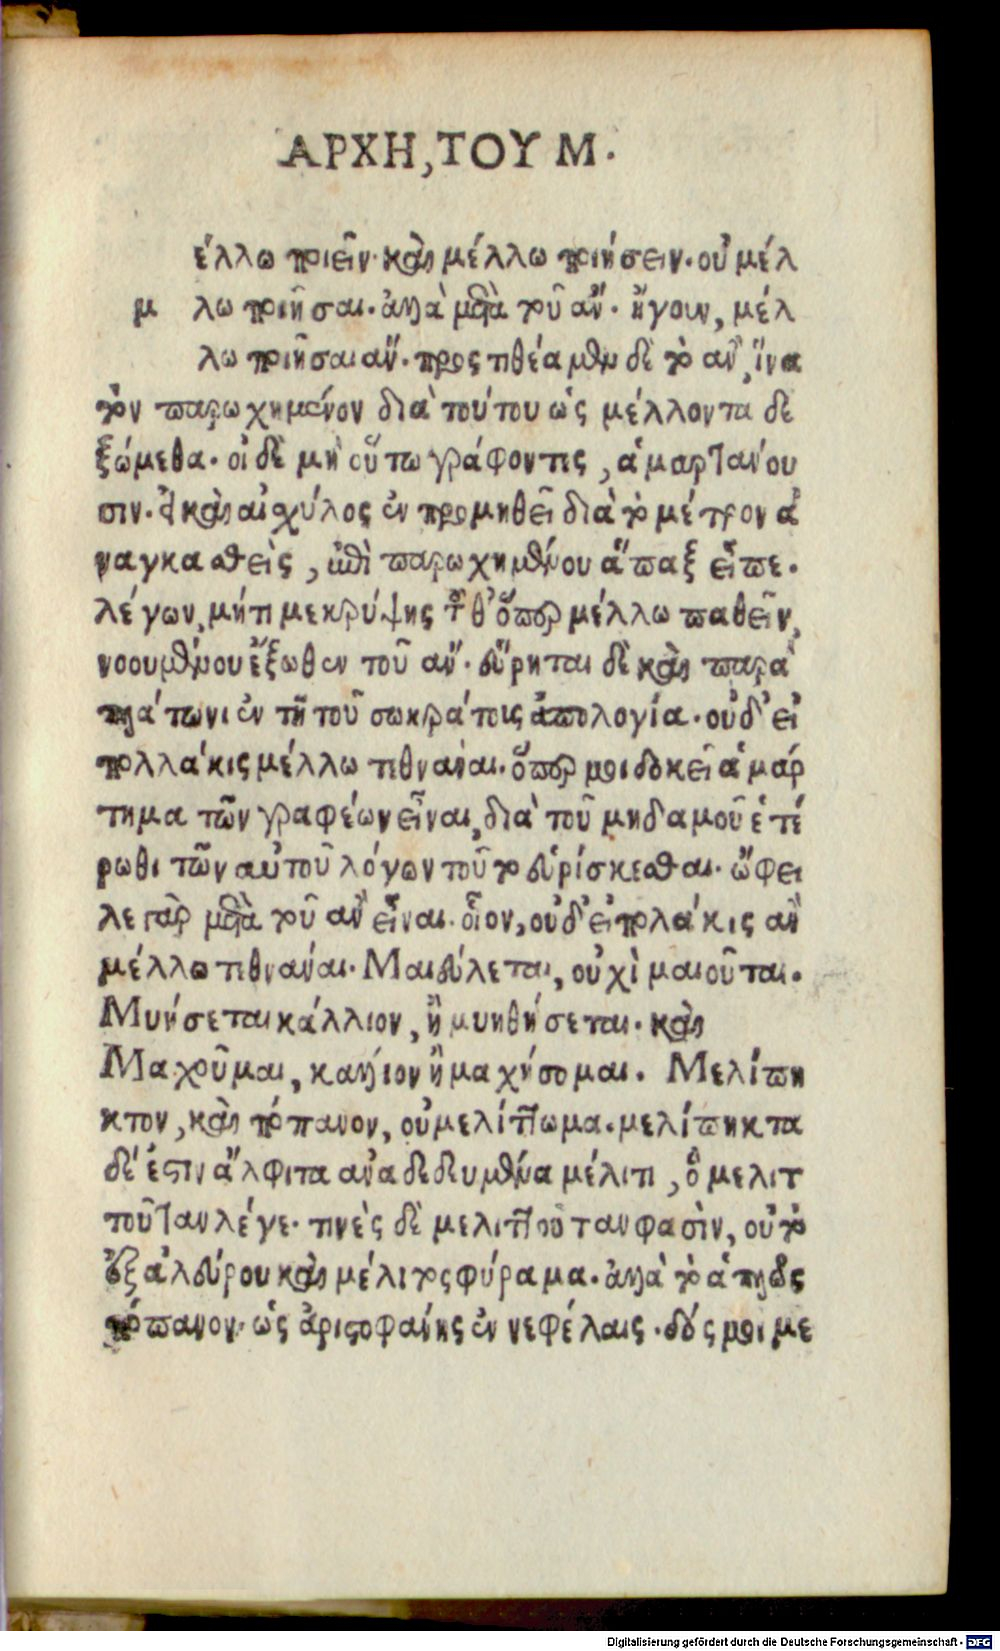 ΑΡΧΗ, ΤΟΥ Μ.
έλλω ποιεῖν· καὶ μέλλω ποιήσειν. οὐ μέλ
μ λω ποιῆσαι. ἀλλὰ μετὰ τοῦ ἄν. ἤγουν, μέλ
λω ποιῆσαι ἄν. προστιθέαμεν δὲ τὸ ἂν, ἵνα
τὸν παρῳχημένον διὰ τούτου ὡς μέλλοντα δε
ξώμεθα. οἱ δὲ μὴ οὕτω γράφοντες, ἁμαρτάνου
σιν. καὶ αἰσχύλος ἐν προμηθεῖ διὰ τὸ μέτρον ἀ
ναγκασθεὶς, ἐπὶ παρῳχημένου ἅπαξ εἶπε.
λέγων, μήτι με κρύψης τοῦθ' ὅπερ μέλλω παθεῖν,
νοουμένου ἔξωθεν τοῦ ἄν. εὕρηται δὲ καὶ παρὰ
πλάτωνι ἐν τῇ τοῦ σωκράτοις ἀπολογία. οὐδ' εἰ
πολλάκις μέλλω τεθνάναι. ὅπερ μοι δοκεῖ ἁμάρ
τημα τῶν γραφέων εἶναι, διὰ τοῦ μηδαμοῦ ἑτέ
ρωθι τῶν αὐτοῦ λόγων τοῦτο εὑρίσκεσθαι. ὤφει
λε γὰρ μετὰ τοῦ ἂν εἶναι. οἷον, οὐδ' εἰ πολάκις ἂν
μέλλω τεθνάναι. Μαιεύεται, οὐχὶ μαιοῦται.
Μυήσεται κάλλιον, ἢ μυηθήσεται. καὶ
Μαχοῦμαι, κάλλιον ἢ μαχήσομαι. Μελίπη
κτον, καὶ πόπανον, οὐ μελίττωμα. μελίπηκτα
δέ ἐστιν ἄλφιτα ἀναδεδευμένα μέλιτι, ὃ μελιτ
τοῦταν λέγε. τινὲς δὲ μελιττοῦταν φασὶν, οὐ τὸ
ἐξ ἀλεύρου καὶ μέλιτος φύραμα. ἀλλὰ τὸ ἁπλῶς
πόπανον. ὡς ἀριστοφάνης ἐν νεφέλαις. δός μοι με
Digitalisierung gefördert durch die Deutsche Forschungsgemeinschaft - DFG